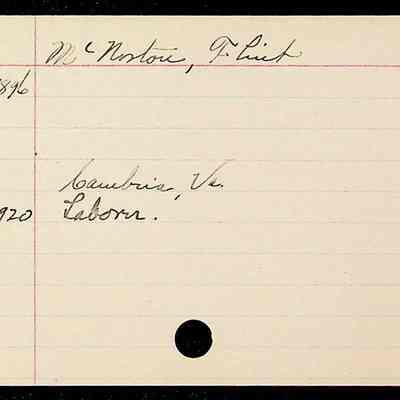 McNorton, Flint
896
Cambria, Va.
920 Laborer.